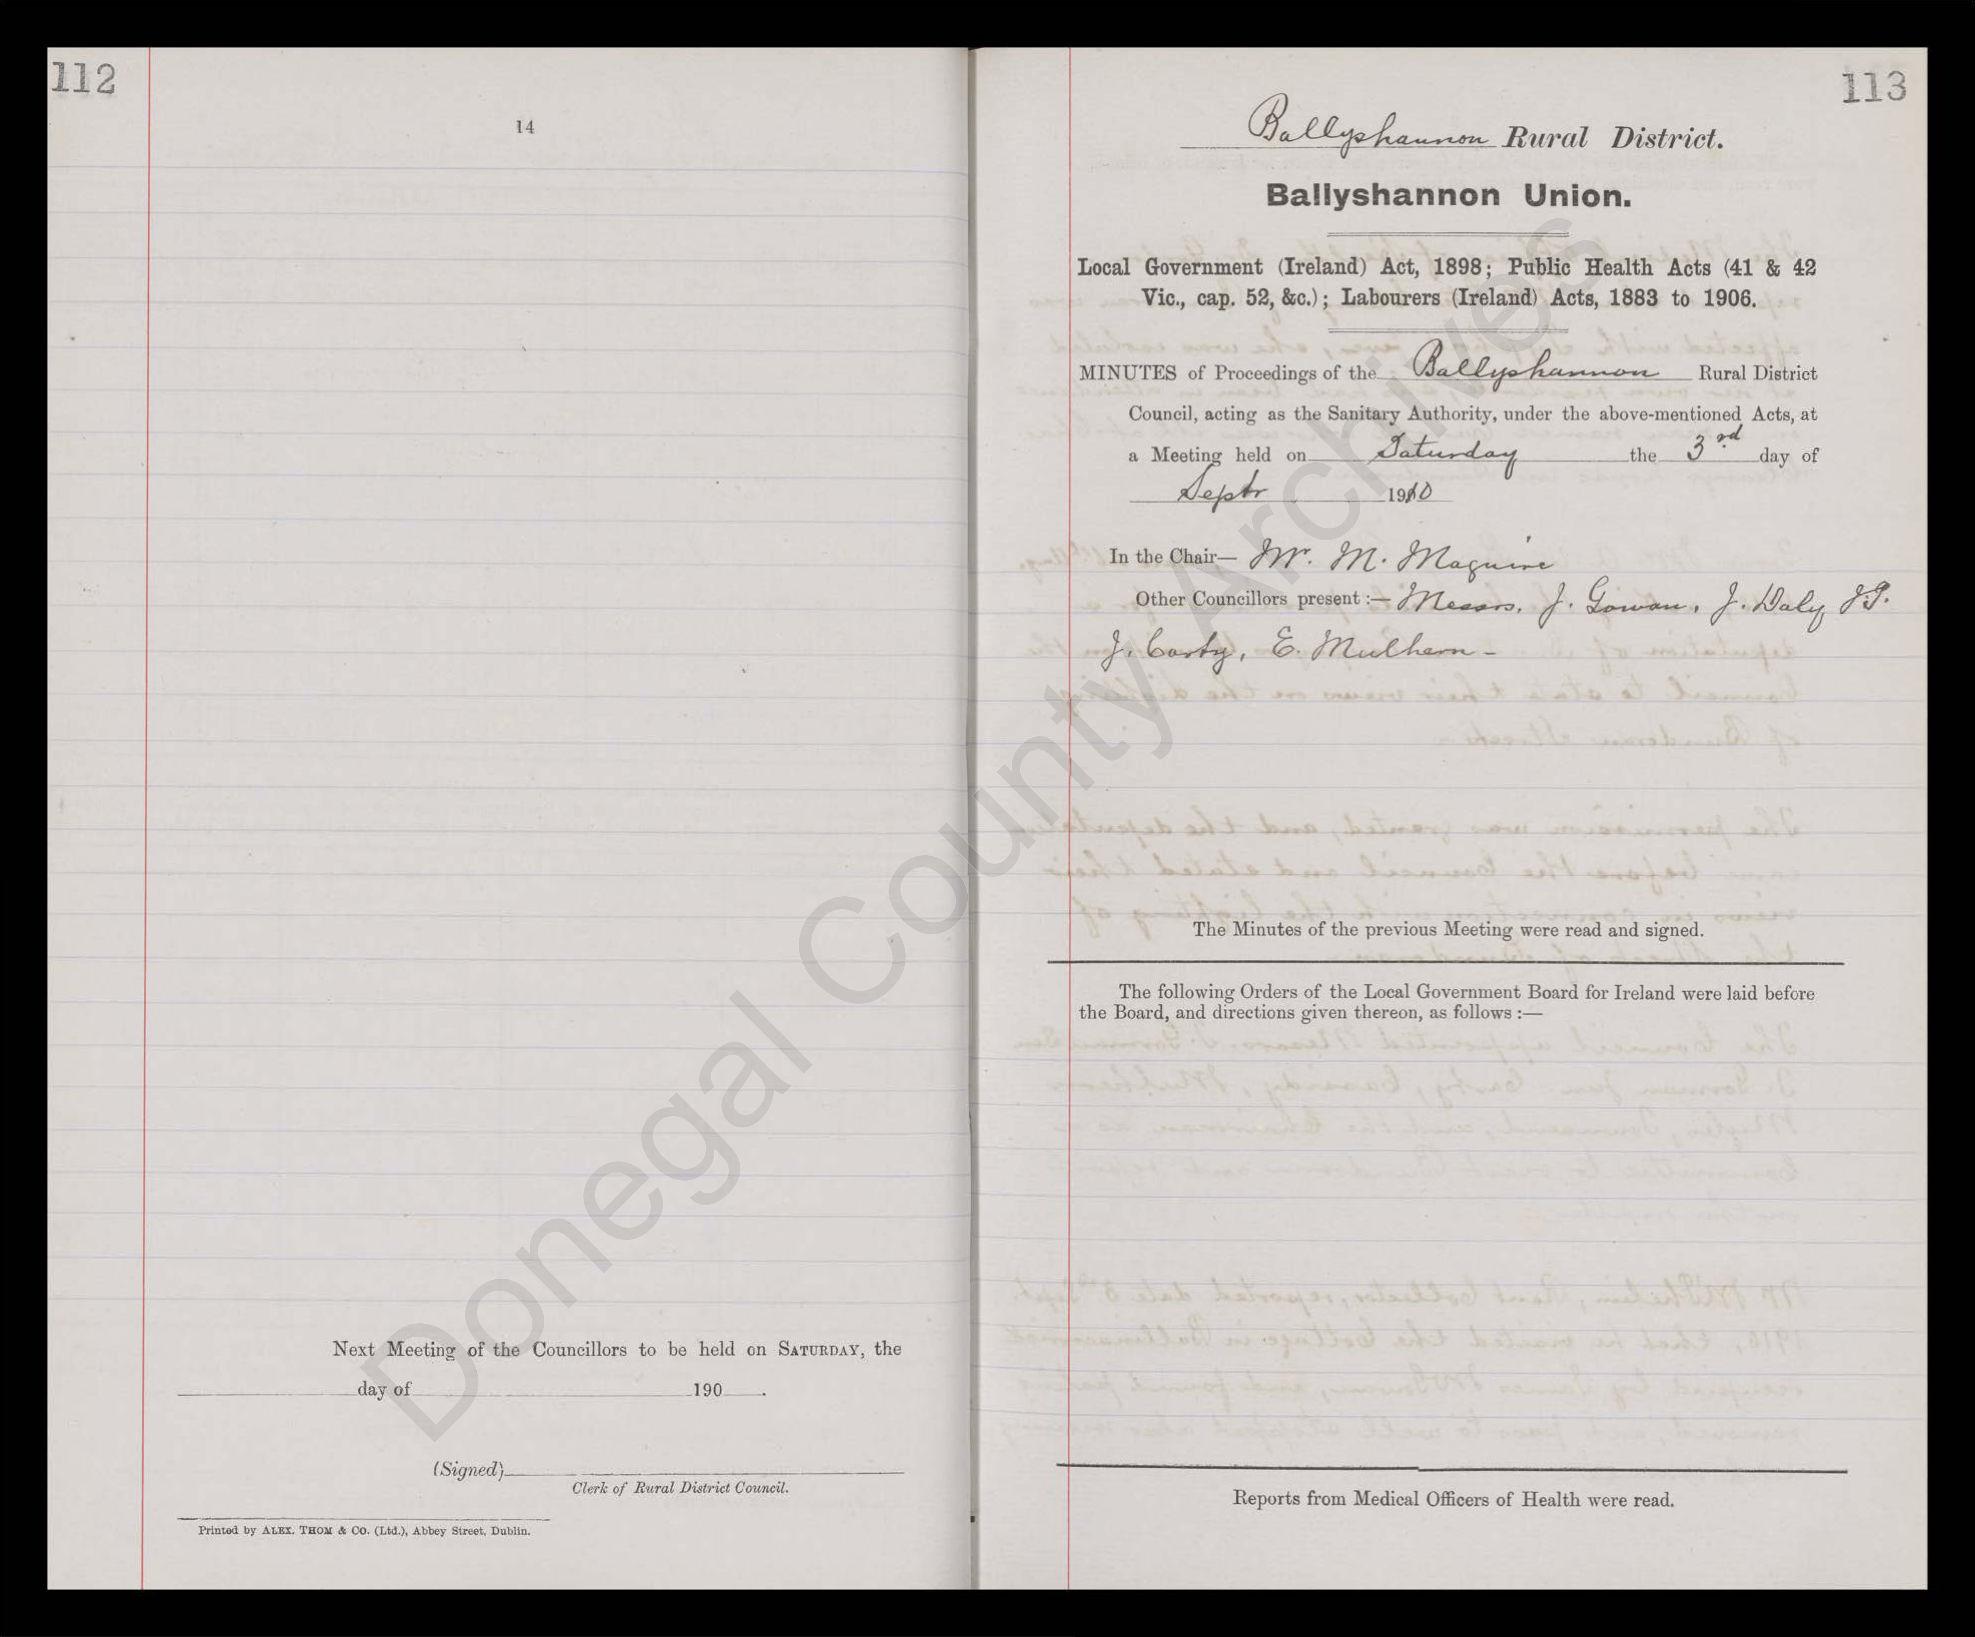 112
14
Next Meeting of the Councillors to be held on SATURDAY, the
day of 190 .
(Signed)
Clerk of Rural District Council.
Printed by ALEX. THOM & CO. (Ltd.), Abbey Street, Dublin.
113
Ballyshannon Rural District.
Ballyshannon Union.
Local Government (Ireland) Act, 1898; Public Health Acts (41 & 42
Vic., cap. 52, &c.); Labourers (Ireland) Acts, 1883 to 1906.
MINUTES of Proceedings of the Ballyshannon Rural District
Council, acting as the Sanitary Authority, under the above-mentioned Acts, at
a Meeting held on Saturday the 3rd day of
Septr 1910
In the Chair— Mr. M. Maguire
Other Councillors present :— Messrs. J. Gowan, J. Daly J.P.
J. Carty, E. Mulhern -
The Minutes of the previous Meeting were read and signed.
The following Orders of the Local Government Board for Ireland were laid before
the Board, and directions given thereon, as follows :—
Reports from Medical Officers of Health were read.
Donegal County Archives